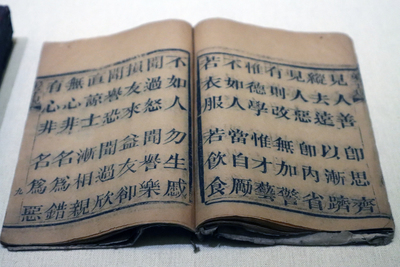 見人善 即思齊
縱去遠 以漸躋
見人惡 即內省
有則改 無加警
惟德學 惟才藝
不如人 當自勵
若衣服 若飲食
不如人 勿生慼
聞過怒 聞譽樂
損友來 益友卻
聞譽恐 聞過欣
直諒士 漸相親
無心非 名爲錯
有心非 名爲惡
九